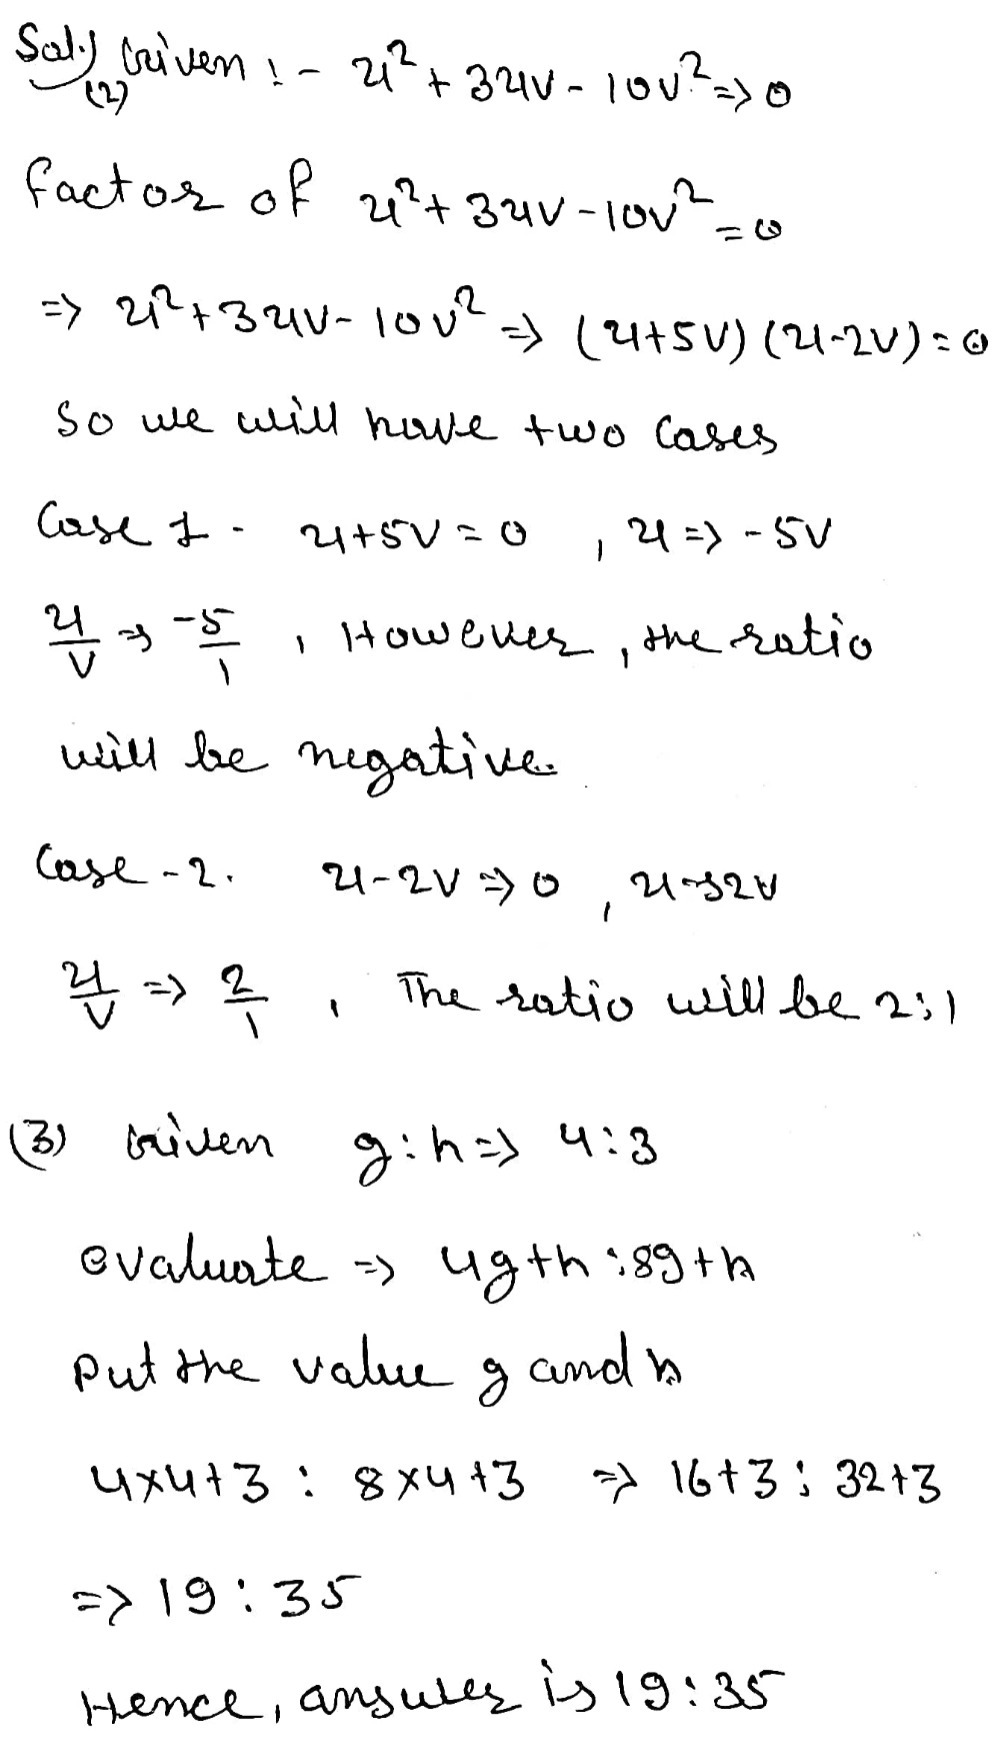 Sol.) Given :- u² + 3uv - 10v² => 0
(2)
factor of u² + 3uv - 10v² = 0
=> u² + 3uv - 10v² => (u+5v) (u-2v) = 0
So we will have two cases
Case 1 - u+5v = 0 , u => -5v
u/v => -5/1 , However, the ratio
will be negative.
Case -2. u-2v => 0 , u=>2v
u/v => 2/1 , The ratio will be 2:1
(3) Given g:h => 4:3
evaluate => 4g+h : 8g+h
Put the value g and h
4×4+3 : 8×4+3 => 16+3 : 32+3
=> 19 : 35
Hence, answer is 19 : 35